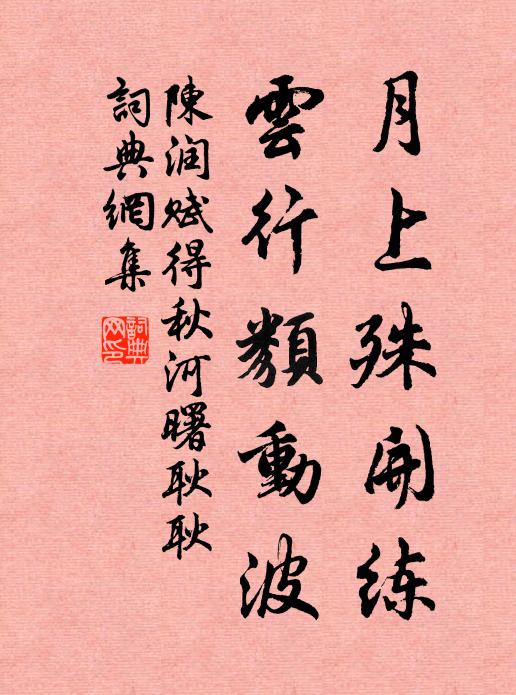 月上殊開练
雲行類動波
陳润赋得秋河曙耿耿
詞典網集
詞典網印